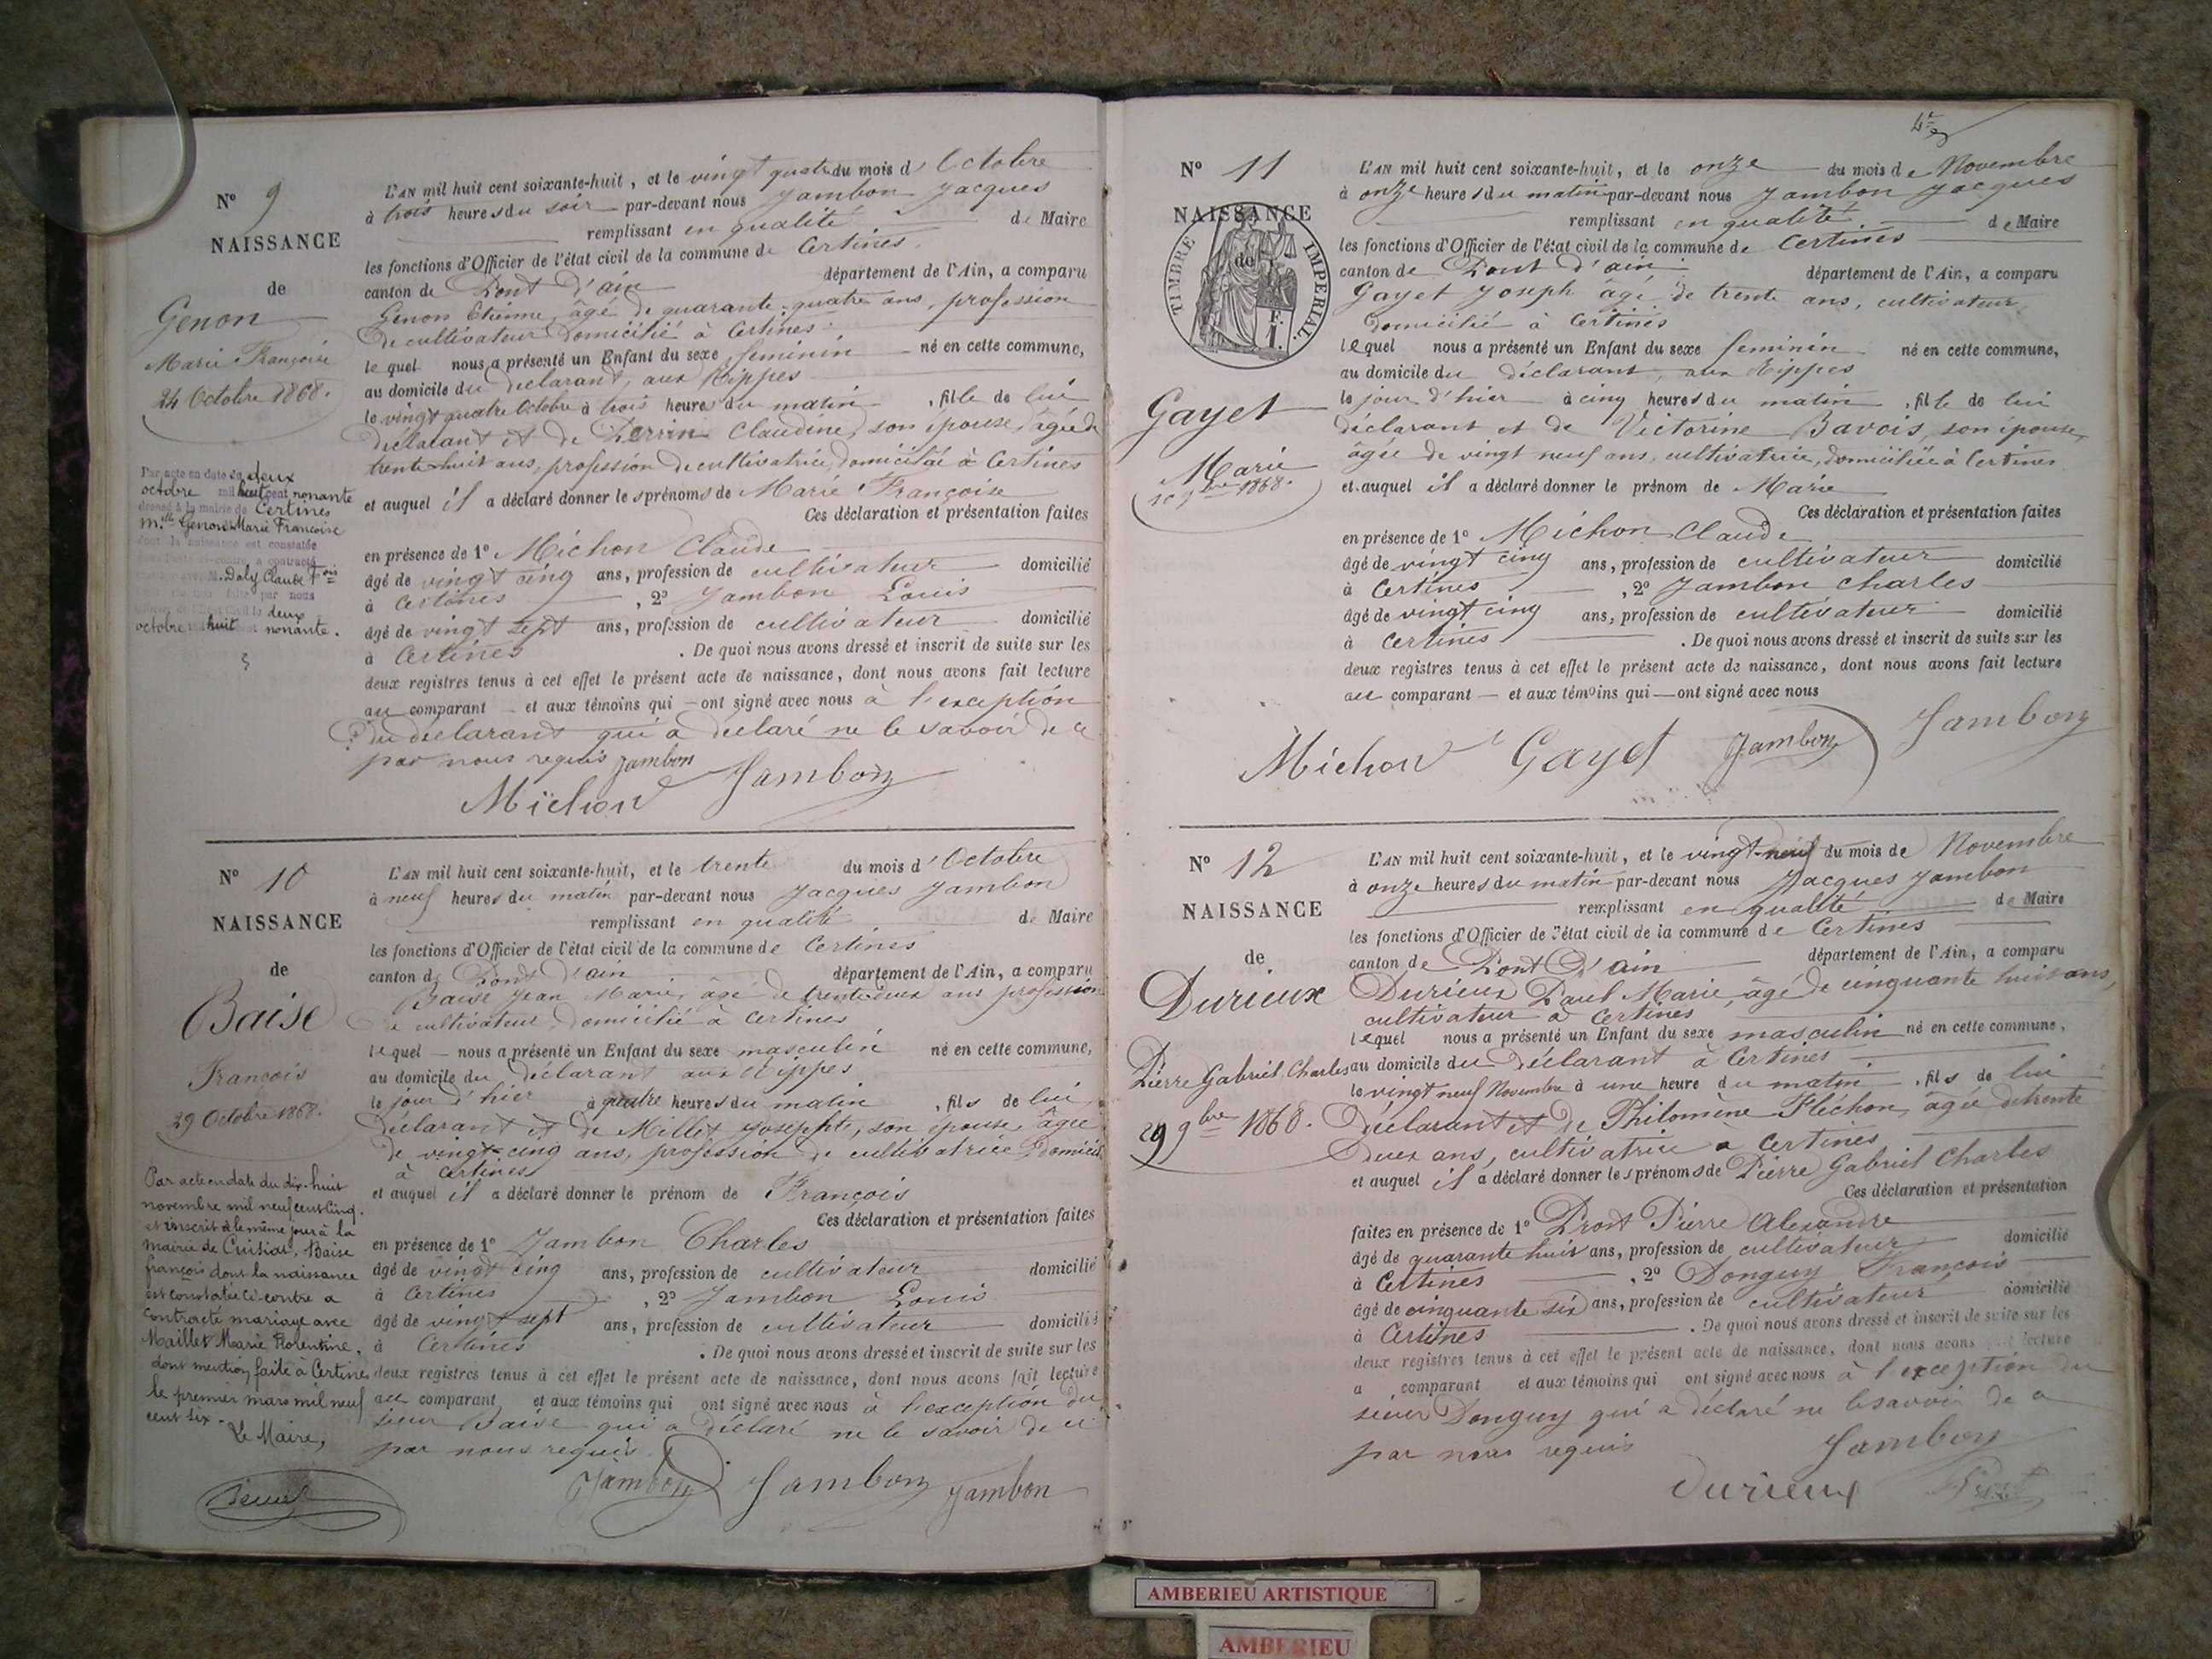 N° 9
NAISSANCE
de
Genon
Marie Françoise
24 Octobre 1868.
Par acte en date du deux
octobre mil huit cent nonante
dressé à la mairie de Certines
Mlle Genon Marie Françoise
dont la naissance est constatée
a contracté
M. Doly Claude
par nous
deux
octobre huit nonante.
L'AN mil huit cent soixante-huit, et le vingt quatre du mois d'Octobre
à trois heures du soir par-devant nous Jambon Jacques
remplissant en qualité de Maire
les fonctions d'Officier de l'état civil de la commune de Certines
canton de Pont d'ain département de l'Ain, a comparu
Genon Etienne, âgé de quarante-quatre ans, profession
de cultivateur domicilié à Certines
lequel nous a présenté un Enfant du sexe feminin né en cette commune,
au domicile du déclarant, aux Rippes
le vingt quatre Octobre à trois heures du matin, fille de lui
déclarant et de Perrin Claudine, son épouse, âgée de
trente-huit ans, profession de cultivatrice, domiciliée à Certines
et auquel il a déclaré donner les prénoms de Marie Françoise
Ces déclaration et présentation faites
en présence de 1° Michon Claude
âgé de vingt cinq ans, profession de cultivateur domicilié
à Certines, 2° Jambon Louis
âgé de vingt sept ans, profession de cultivateur domicilié
à Certines. De quoi nous avons dressé et inscrit de suite sur les
deux registres tenus à cet effet le présent acte de naissance, dont nous avons fait lecture
au comparant et aux témoins qui ont signé avec nous à l'exception
du déclarant qui a déclaré ne le savoir de ce
par nous requis Jambon
Michon Jambon
N° 10
NAISSANCE
de
Baise
François
29 Octobre 1868.
Par acte en date du dix-huit
novembre mil neuf cent cinq.
et inscrit le même jour à la
mairie de Cuisiat, Baise
françois dont la naissance
est constatée ci-contre a
contracté mariage avec
Maillet Marie Florentine.
dont mention faite à Certines
le premier mars mil neuf
cent six.
Le Maire,
L'AN mil huit cent soixante-huit, et le trente du mois d'Octobre
à neuf heures du matin par-devant nous Jacques Jambon
remplissant en qualité de Maire
les fonctions d'Officier de l'état civil de la commune de Certines
canton de Pont d'ain département de l'Ain, a comparu
Baise Jean Marie, âgé de trente deux ans profession
de cultivateur, domicilié à Certines
lequel nous a présenté un Enfant du sexe masculin né en cette commune,
au domicile du déclarant aux Rippes
le jour d'hier à quatre heures du matin, fils de lui
déclarant et de Millet Josephte, son épouse, âgée
de vingt-cinq ans, profession de cultivatrice domicil
à Certines
et auquel il a déclaré donner le prénom de François
Ces déclaration et présentation faites
en présence de 1° Jambon Charles
âgé de vingt cinq ans, profession de cultivateur domicilié
à Certines, 2° Jambon Louis
âgé de vingt sept ans, profession de cultivateur domicilié
à Certines. De quoi nous avons dressé et inscrit de suite sur les
deux registres tenus à cet effet le présent acte de naissance, dont nous avons fait lecture
au comparant et aux témoins qui ont signé avec nous à l'exception du
sieur Baise qui a déclaré ne le savoir de ce
par nous requis
Jambon Jambon Jambon
N° 11
NAISSANCE
de
TIMBRE IMPERIAL
1 F.
Gayet
Marie
10 9bre 1868.
L'AN mil huit cent soixante-huit, et le onze du mois de Novembre
à onze heures du matin par-devant nous Jambon Jacques
remplissant en qualité de Maire
les fonctions d'Officier de l'état civil de la commune de Certines
canton de Pont d'ain département de l'Ain, a comparu
Gayet Joseph âgé de trente ans, cultivateur
domicilié à Certines
lequel nous a présenté un Enfant du sexe feminin né en cette commune,
au domicile du déclarant, aux Rippes
le jour d'hier à cinq heures du matin, fille de lui
déclarant et de Victorine Bavois, son épouse,
âgée de vingt neuf ans, cultivatrice, domiciliée à Certines
et auquel il a déclaré donner le prénom de Marie
Ces déclaration et présentation faites
en présence de 1° Michon Claude
âgé de vingt cinq ans, profession de cultivateur domicilié
à Certines, 2° Jambon Charles
âgé de vingt cinq ans, profession de cultivateur domicilié
à Certines. De quoi nous avons dressé et inscrit de suite sur les
deux registres tenus à cet effet le présent acte de naissance, dont nous avons fait lecture
au comparant et aux témoins qui ont signé avec nous
Michon Gayet Jambon Jambon
N° 12
NAISSANCE
de
Durieux
Pierre Gabriel Charles
29 9bre 1868.
L'AN mil huit cent soixante-huit, et le vingt-neuf du mois de Novembre
à onze heures du matin par-devant nous Jacques Jambon
remplissant en qualité de Maire
les fonctions d'Officier de l'état civil de la commune de Certines
canton de Pont d'ain département de l'Ain, a comparu
Durieux Paul Marie, âgé de cinquante huit ans,
cultivateur à Certines
lequel nous a présenté un Enfant du sexe masculin né en cette commune,
au domicile du déclarant à Certines
le vingt neuf Novembre à une heure du matin, fils de lui
Déclarant et de Philomène Fléchon, âgée de trente
deux ans, cultivatrice à Certines
et auquel il a déclaré donner les prénoms de Pierre Gabriel Charles
Ces déclaration et présentation
faites en présence de 1° Prost Pierre Alexandre
âgé de quarante huit ans, profession de cultivateur domicilié
à Certines, 2° Donguy François
âgé de cinquante six ans, profession de cultivateur domicilié
à Certines. De quoi nous avons dressé et inscrit de suite sur les
deux registres tenus à cet effet le présent acte de naissance, dont nous avons fait lecture
a comparant et aux témoins qui ont signé avec nous à l'exception du
sieur Donguy qui a déclaré ne le savoir de ce
par nous requis
Jambon
Durieux Prost
AMBERIEU ARTISTIQUE
AMBERIEU